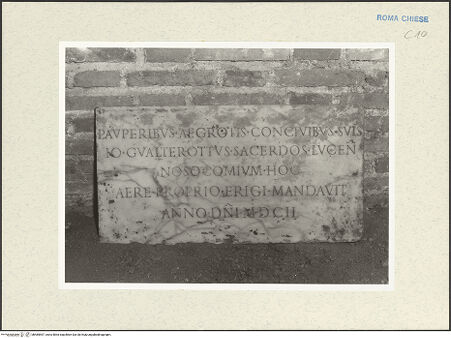 ROMA CHIESE
C10
PAVPERIBVS·AEGROTIS·CONCIVIBVS·SVIS
IO·GVALTEROTTVS·SACERDOS·LVCEÑ
NOSOCOMIVM·HOC
AERE·PROPRIO·ERIGI·MANDAVIT
ANNO·DÑI·M·D·CII